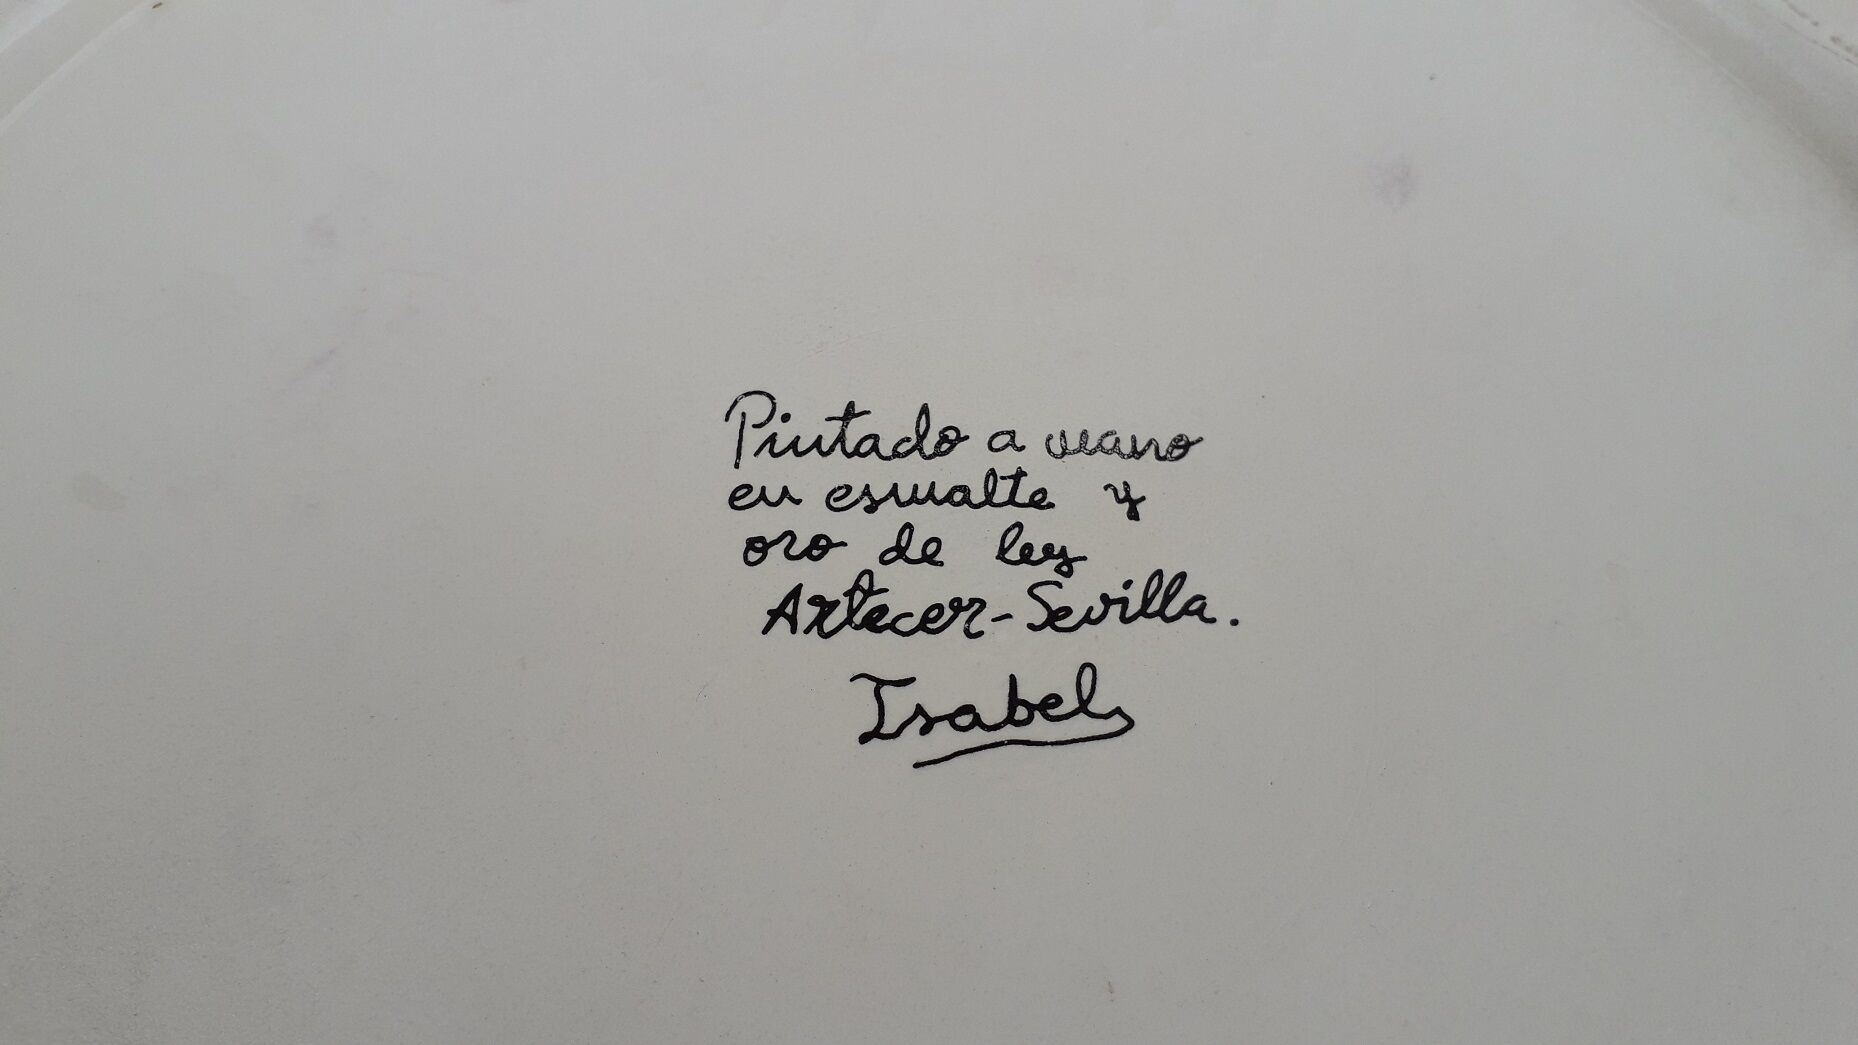 Pintado a mano
en esmalte y
oro de ley
Artecer-Sevilla.
Isabel